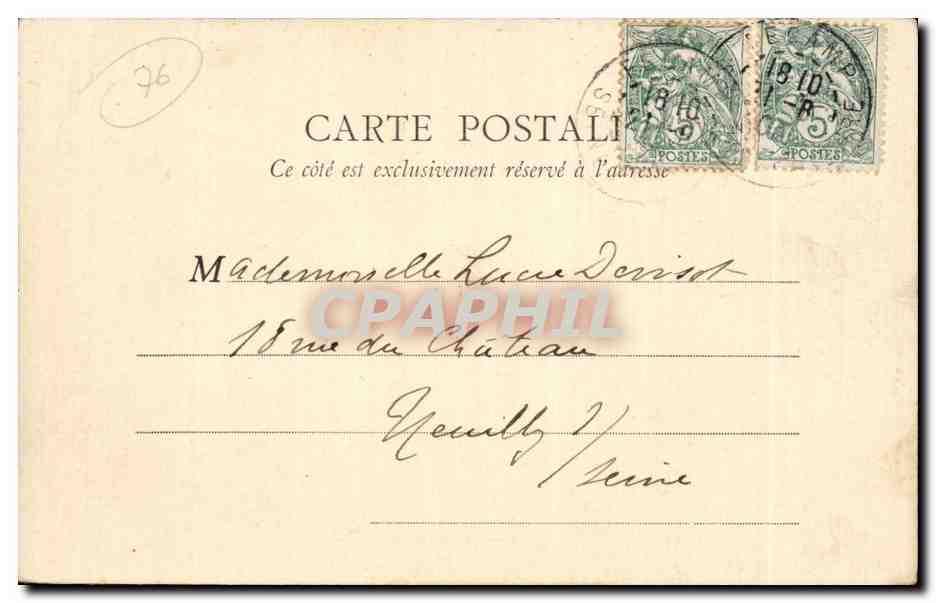 76
CARTE POSTALE
Ce côté est exclusivement réservé à l'adresse
5 5
POSTES POSTES
18 10 18 10
Mademoiselle Lucie
CPAPHIL
18 rue du Château
Neuilly s/
Seine